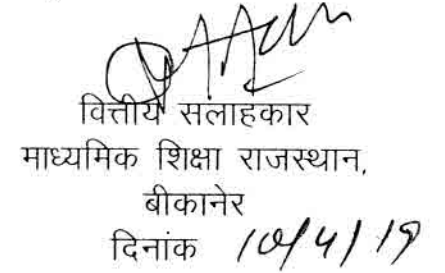 वित्तीय सलाहकार
माध्यमिक शिक्षा राजस्थान,
बीकानेर
दिनांक 10/4/19